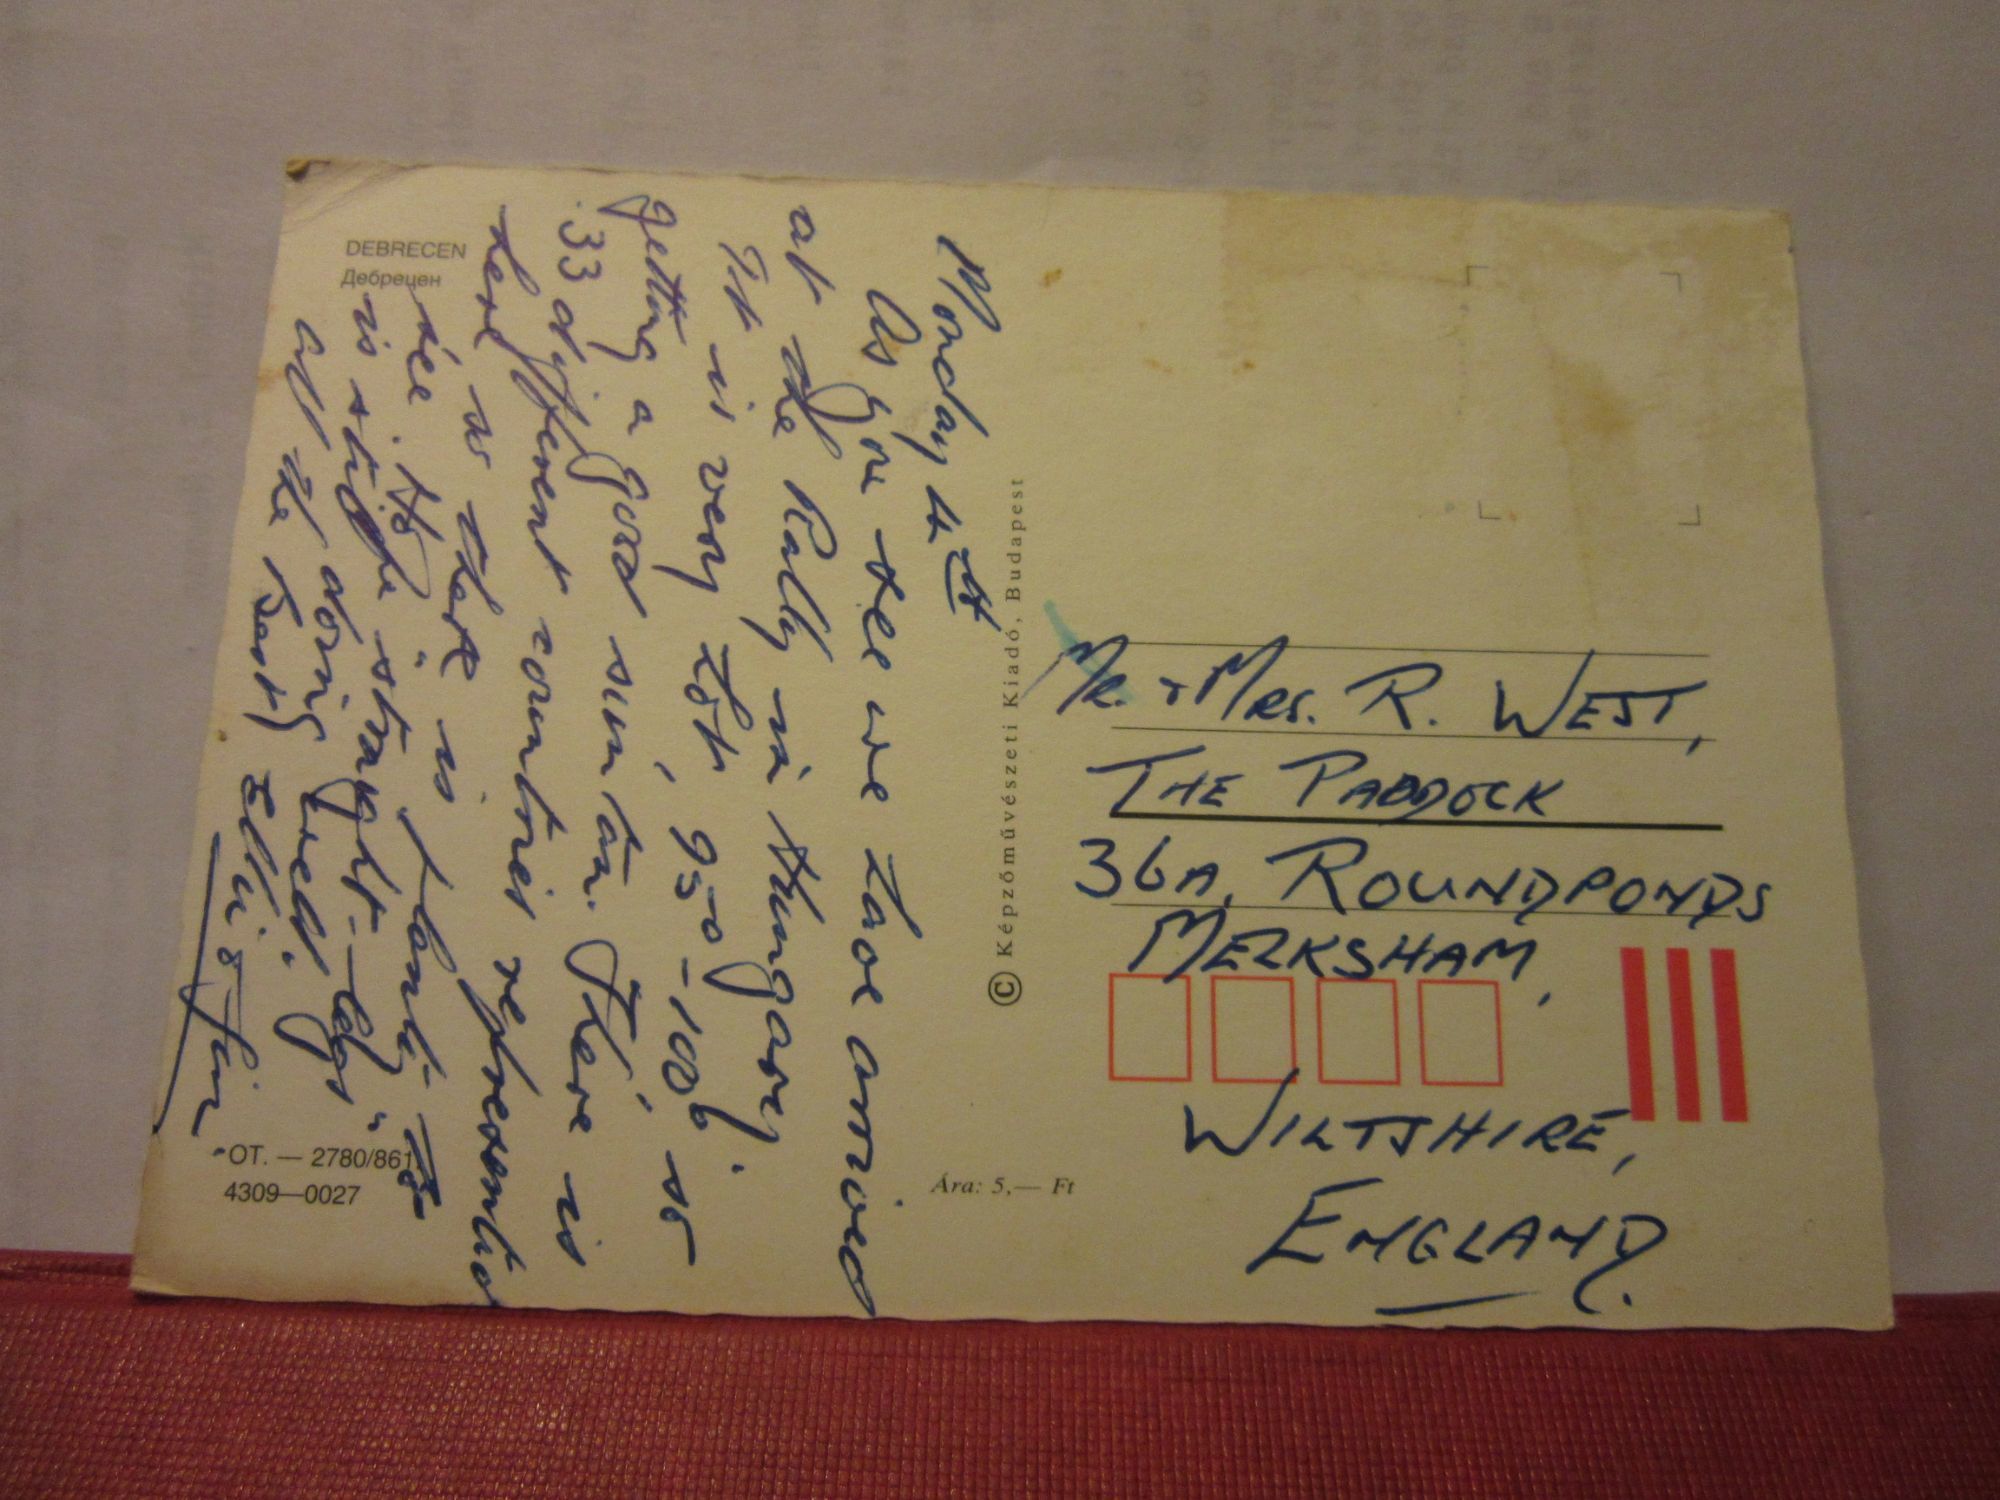 DEBRECEN
Дебрецен
Monday 4th
As you see we have arrived
at the Rally in Hungary.
It is very hot, 950-100 so
getting a good sun tan. There is
33 different countries
here so there is plenty to
see to. "
is straight-legs"
all doing well.
all the Best Ellis & Jim.
OT. — 2780/861
4309—0027
© Képzőművészeti Kiadó, Budapest
Ára: 5,— Ft
Mr. & Mrs. R. West,
The Paddock
36A, Roundponds
Melksham,
Wiltshire,
England.